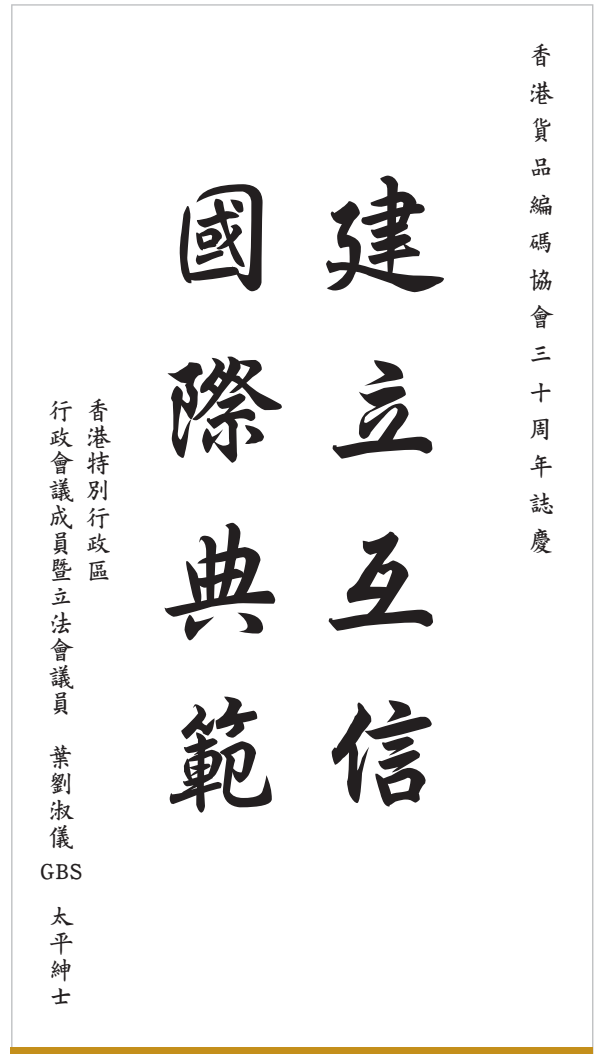 香港貨品編碼協會三十周年誌慶
建立互信
國際典範
香港特別行政區
行政會議成員暨立法會議員 葉劉淑儀 GBS 太平紳士